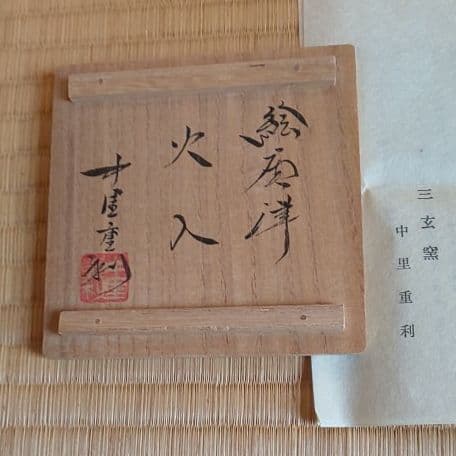 三玄窯
中里重利
絵唐津
火入
中里重利